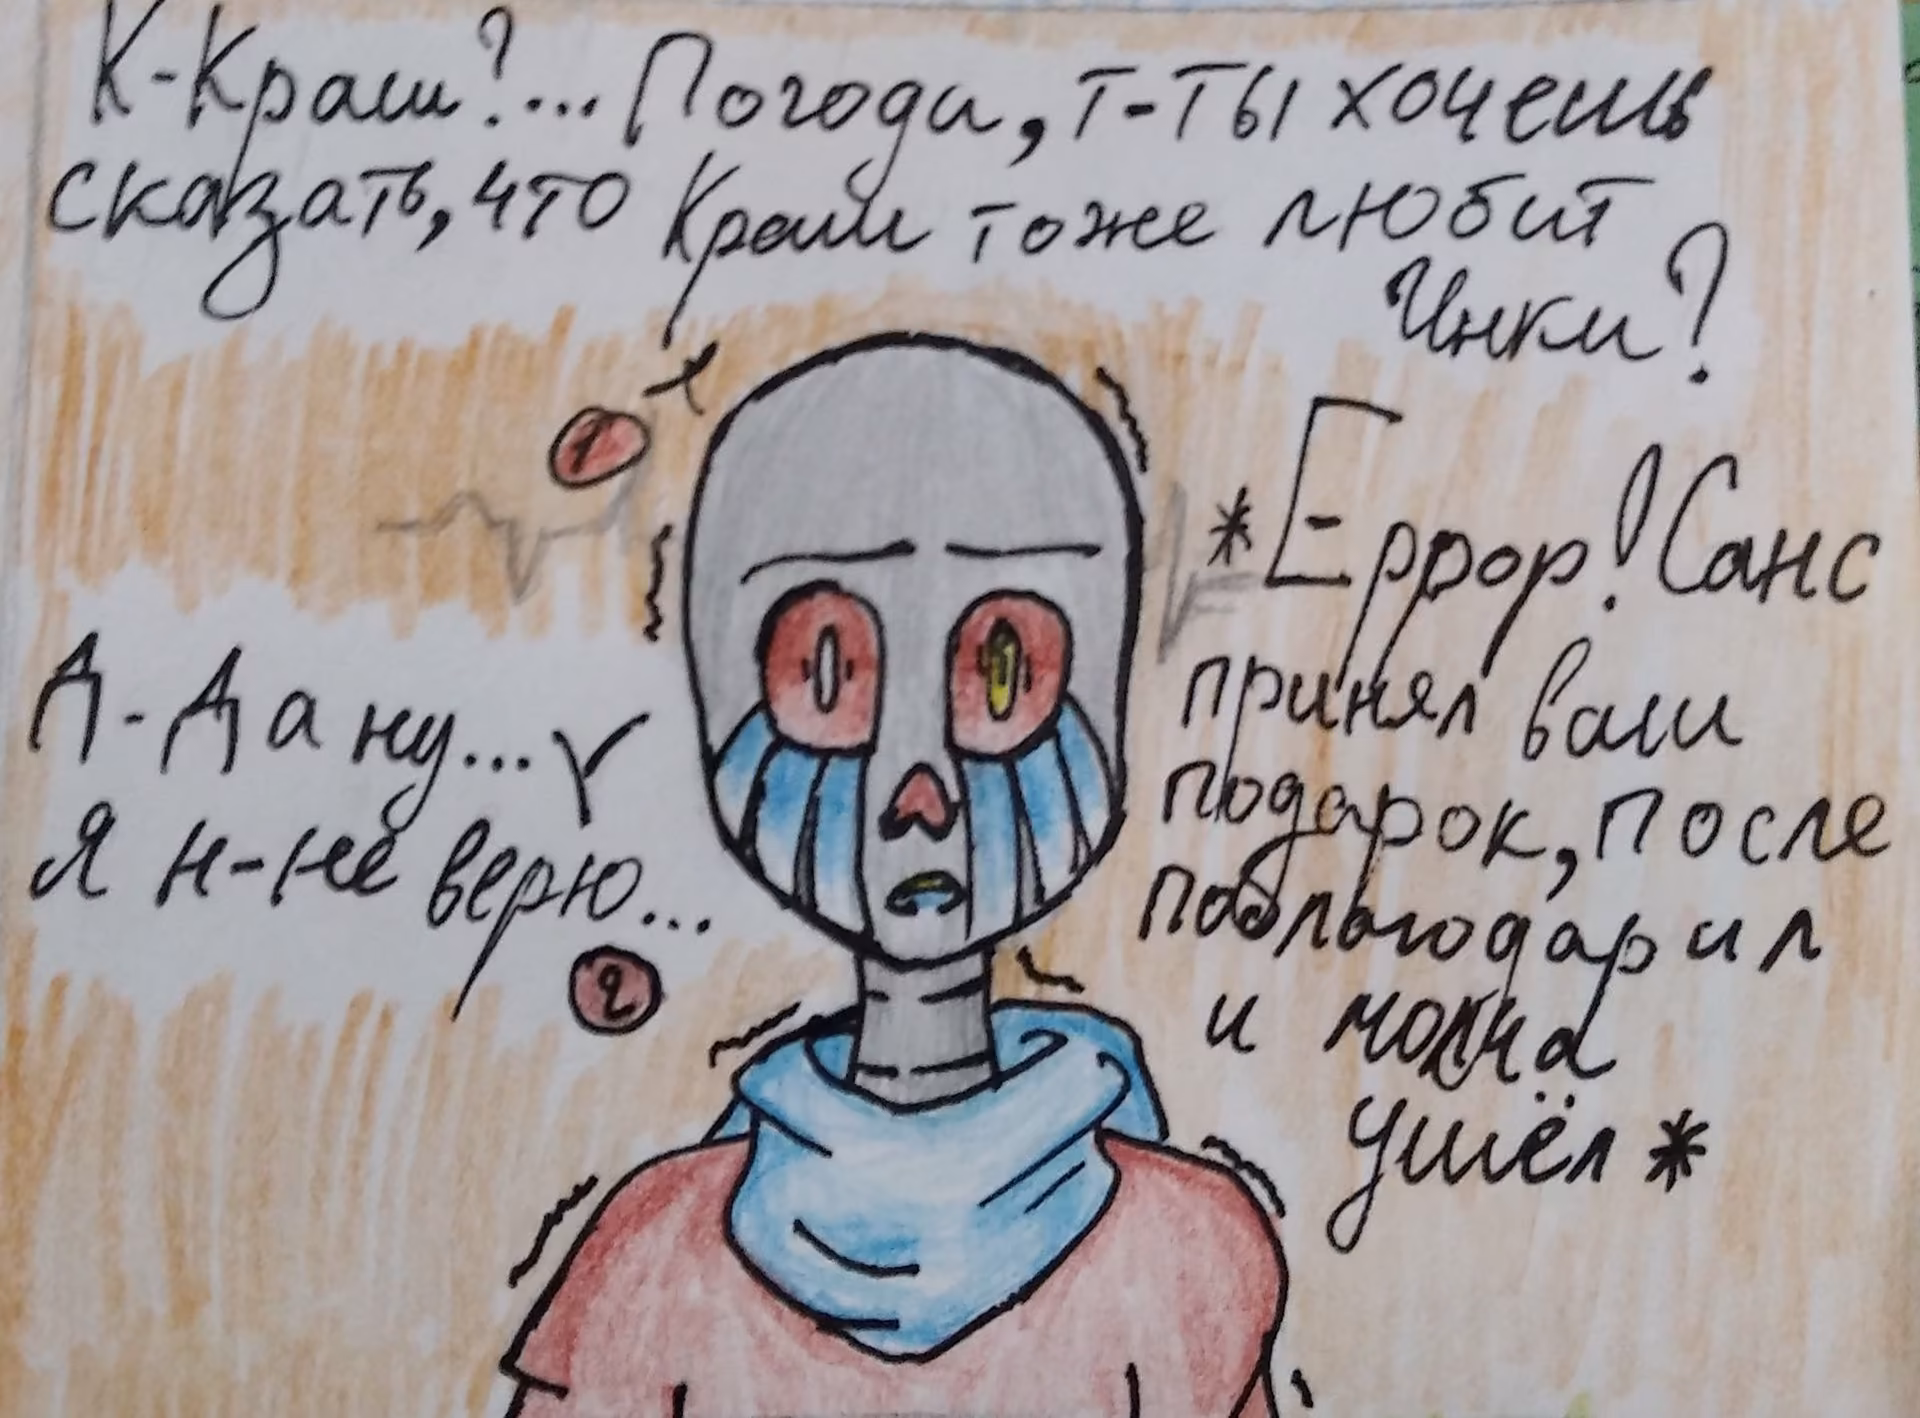 К-Краш?... Погоди, т-ты хочешь
сказать, что Краш тоже любит
Инки?
1
Д-Да ну...
Я н-не верю...
2
*Еррор!Санс
принял ваш
подарок, после
поблагодарил
и молча
ушёл*